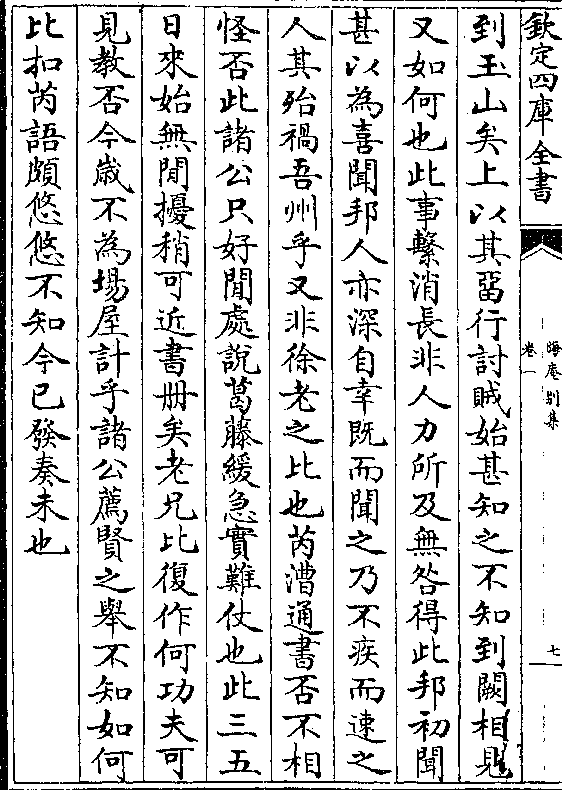 欽定四庫全書
晦庵別集
卷一
七
到玉山矣上以其畱行討賊始甚知之不知到闕相見
又如何也此事繫消長非人力所及無咎得此邦初聞
甚以為喜聞邦人亦深自幸既而聞之乃不疾而速之
人其殆禍吾州乎又非徐老之比也芮漕通書否不相
怪否此諸公只好閒處說葛藤緩急實難仗也此三五
日來始無閒擾稍可近書册矣老兄比復作何功夫可
見教否今歲不為場屋計乎諸公薦賢之舉不知如何
比扣芮語頗悠悠不知今已發奏未也